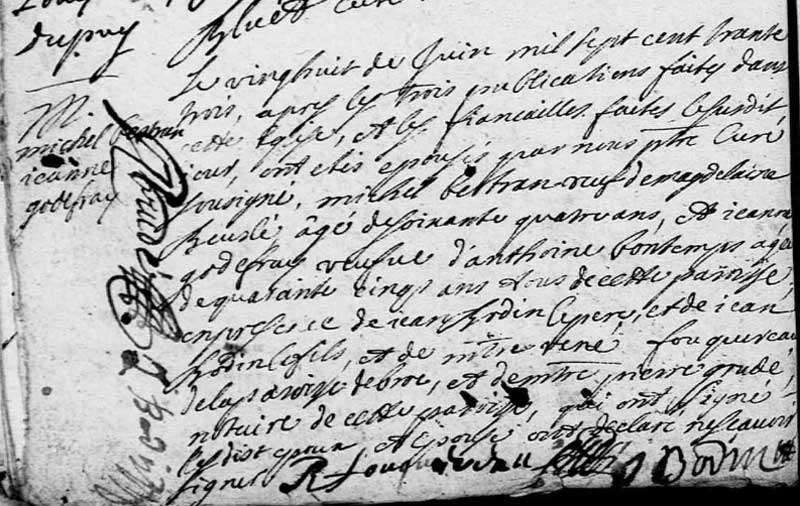 dupuy
Curé
M.
michel beltran
jeanne
godefray
Le vingthuit de Juin mil sept cent trante
trois, apres les trois publications faites dans
cette Eglise, et les fiancailles faites lesusdit
jour, ont etés epousés par nous ptre Curé
sousigné, michel beltran veuf de magdelaine
âgé de soixante quatre ans, et jeanne
godefray veufve d'anthoine bontemps agée
de quarante cinq ans tous de cette paroisse,
en presence de jean bodin le pere, et de jean
bodin le fils, et de mtre rené fouquereau
de la paroisse de broc, et de mtre pierre grudé,
notaire de cette paroisse, qui ont signé
lesdist epoux et epouse ont declaré ne scavoir
signer R. fouquereau
J Bodin